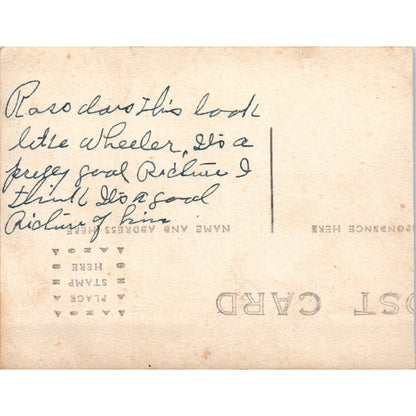 Raso dars this look
like Wheeler, It's a
pretty good Picture I
think It's a good
Picture of him
NAME AND ADDRESS HERE
PONDENCE HERE
ANGO
PLACE
STAMP
HERE
OST CARD